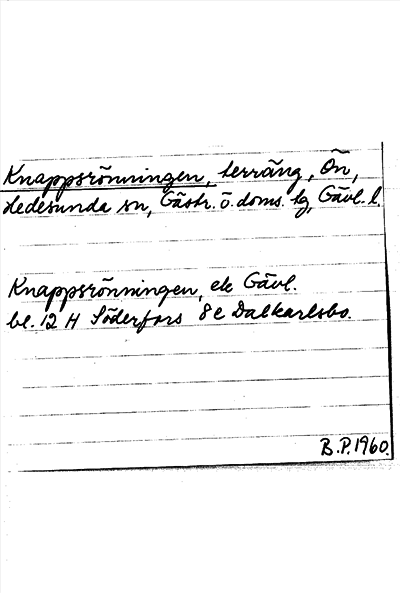 Knappsrönningen, terräng, Ön,
Hedesunda sn, Gästr. ö. doms. tg, Gävl. l.
Knappsrönningen, ek Gävl.
bl. 12 H Söderfors 8 e Dalkarlsbo.
B.P. 1960.